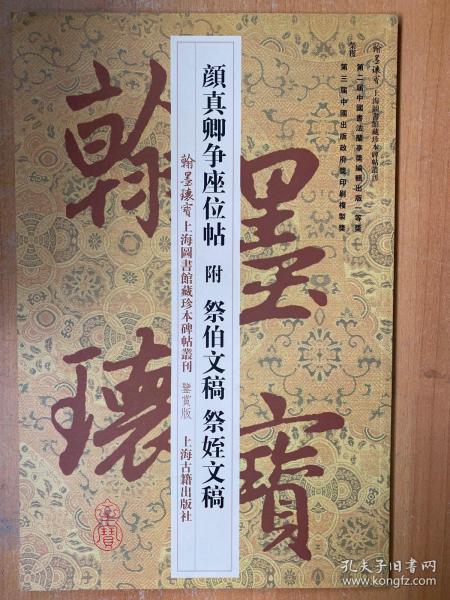 翰墨瓌寶 上海圖書館藏珍本碑帖叢刊
榮獲
第二届中國書法蘭亭獎編輯出版一等獎
第三届中國出版政府獎印刷複製獎
顔真卿争座位帖 附 祭伯文稿 祭姪文稿
翰墨瓌寶 上海圖書館藏珍本碑帖叢刊 鑒賞版 上海古籍出版社
墨寶
翰瓌
孔夫子旧书网
www.kongfz.com